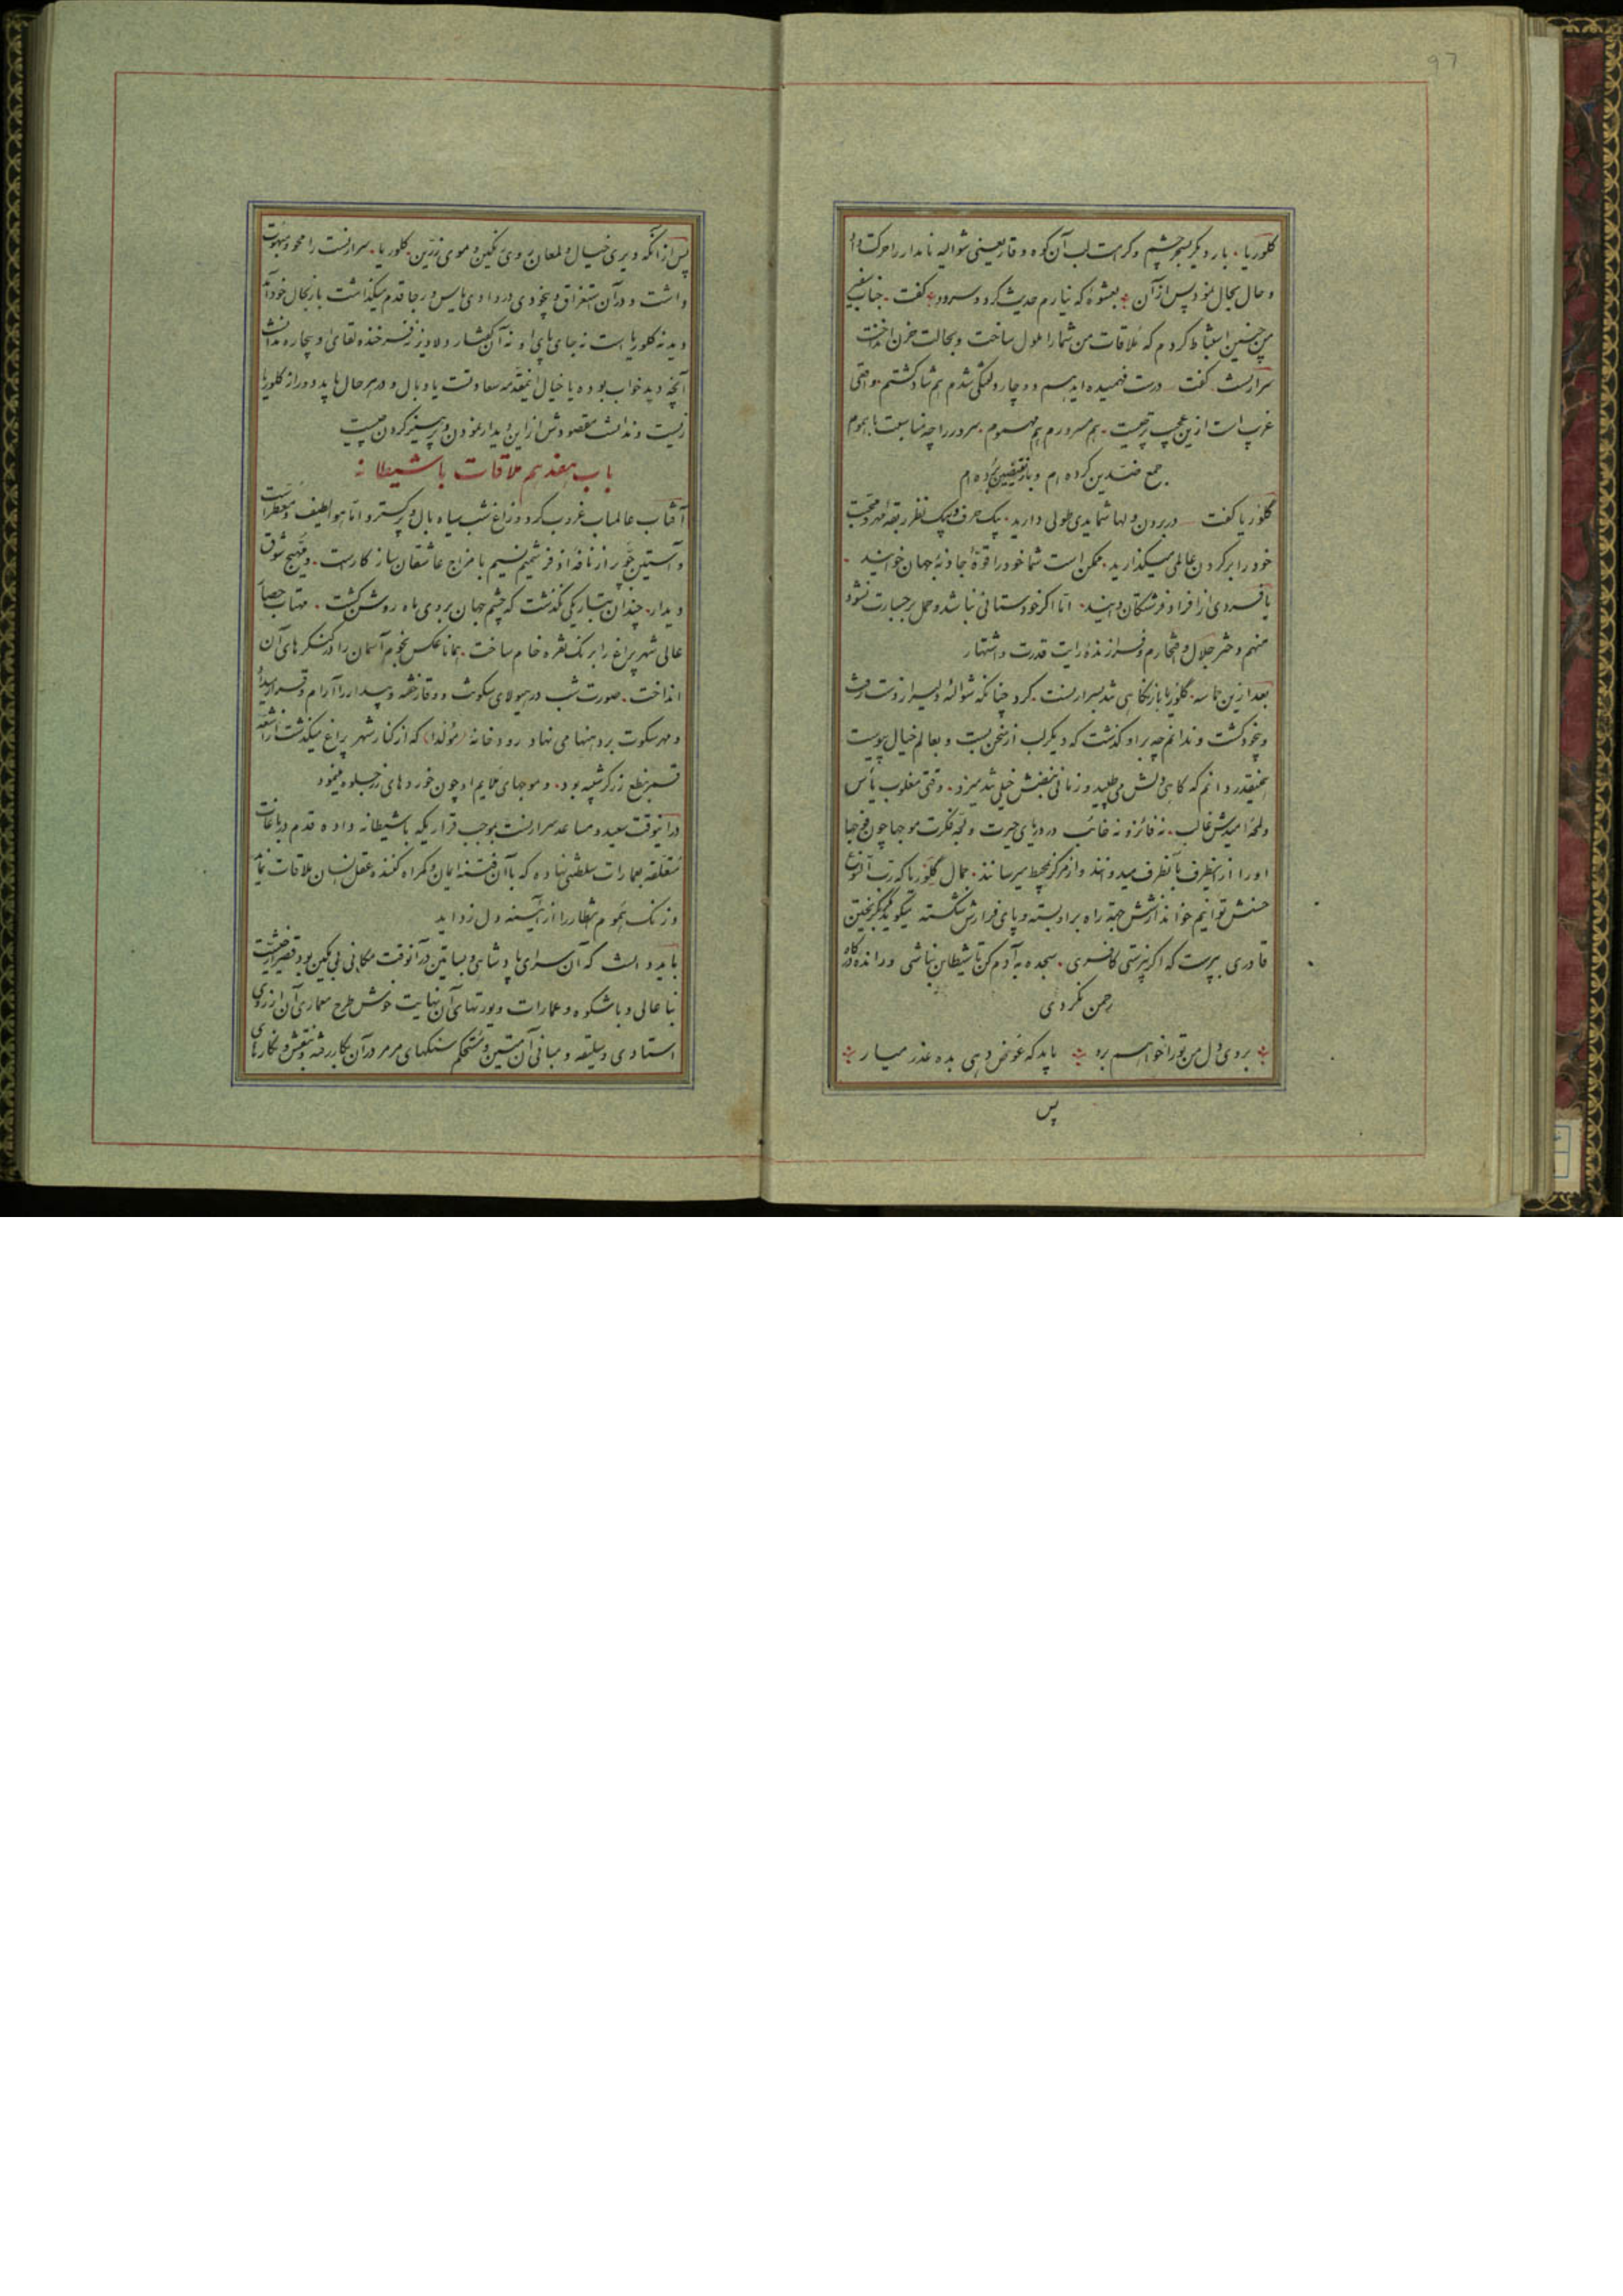 97
کلوریا. بار دیگر سحر چشم و کرامت لب آن کوه وقار یعنی شوالیه نامدار را حرکت داد
و حال بحال نمود پس از آن بعشوهٔ که نیارم حدیث کرد و سرود گفت. جناب
من چنین استنباط کردم که ملاقات من شما را ملول ساخت و بحالت حزن انداخت
سرارنست گفت درست فهمیده‌اید هم دوچار دلتنگی شدم هم شاد گشتم. واقعی
غریب است ازین عجیب‌تر چیست. هم مسرورم هم مهموم. سرور را چه مناسبت با هموم
جمع ضدین کرده‌ام و بار نقیضین برده‌ام
گلوریا گفت در بردن دلها شما یدی طولی دارید. بیک حرف و بیک نظر ربقهٔ مهر و محبت
خود را بر گردن عالمی میگذارید. ممکن است شما خود را قوهٔ جاذبهٔ جهان خوانید.
یا فردی از افراد فرشتگان دانید. اما اگر خودستائی نباشد و حمل بر جسارت نشود
منهم دختر جلال و افتخارم و فرازندهٔ رایت قدرت و اشتهار
بعد ازین حماسه. گلوریا باز نگاهی تند بسرارنست. کرد چنانکه شوالهٔ دلیر از دست رفت
و بیخود گشت و ندانم چه بر او گذشت که دیگر لب از سخن بست و بعالم خیال پیوست
همینقدر دانم که گاهی دلش می‌طپید و زمانی نبضش خیلی تند میزد. وقتی مغلوب یأس
و لمحهٔ امیدش غالب. نه فائز و نه خائب در دریای حیرت و لجهٔ فکرت موجها چون فوج‌ها
او را از اینطرف بآنطرف میدوانند و از مرکز بمحیط میرسانند. جمال گلوریا که رب النوع
حسنش توانیم خواند از شش جهة راه بر او بسته و پای فرارش شکسته میگوید مگر بگریختن
قادری بپرست که اگر نپرستی کافری. سجده به آدم کن تا شیطان نباشی و راندهٔ درگاه
رحمن نگردی
بردی دل من تو را نخواهم برد باید که عوض دهی بده عذر میار
پس
پس از آنکه دیری خیال و لمعان روی نمکین و موی زرین. کلوریا. سرارنست را محو و مبهوت
داشت و در آن استغراق و بیخودی در وادی یأس و رجا قدم میگذاشت باز بحال خود آمد
دید نه کلوریا است نه جای پای او نه آن گفتار دلاویز نه فرخنده لقای او بیچاره ندانست
آنچه دید خواب بوده یا خیال اینمقدمه سعادتست یا وبال و در هر حال باید دور از کلوریا
زیست و ندانست مقصودش از این دیدار نمودن و پرهیز کردن چیست
باب هفدهم ملاقات با شیطانه
آفتاب عالمتاب غروب کرد و زاغ شب سیاه بال و پر گسترد اما هوا لطیف و معطر است
و آستین جو پر از نافهٔ اذفر شمیم نسیم با مزاج عاشقان سازگار است. و مهیج شوق
دیدار. چندان بتاریکی نگذشت که چشم جهان بروی ماه روشن گشت. مهتاب حصار
عالی شهر پراغ را برنگ نقره خام ساخت. همانا عکس نجوم آسمان را در کنگره‌های آن
انداخت. صورت شب در هیولای سکوت و وقار خفته و بیدار را آرام و قرار میداد
و مهر سکوت بر دهنها می‌نهاد رودخانه (مؤلدا) که از کنار شهر پراغ میگذشت از اشعه
قمر نطع زرکش شده بود. و موجهای ملایم او چون خورده‌های زر جلوه مینمود
در اینوقت سعید و مساعد سرارنست بموجب قراریکه باشیطانه داده قدم در باغات
متعلقه بعمارات سلطنتی نهاده که با آن فتنه ایمان و گمراه کننده عقل انسان ملاقات نماید
و زنگ هموم انتظار را از آئینه دل زداید
باید دانست که آن سرای پادشاهی و بساتین در آنوقت مکانی بی‌مکین بود قصر
بنا عالی و باشکوه و عمارات و یورتهای آن نهایت خوش طرح معماری آن از روی
استادی و سلیقه و مبانی آن متین و مستحکم سنگهای مرمر در آن بکار رفته و نقش و نگارهای